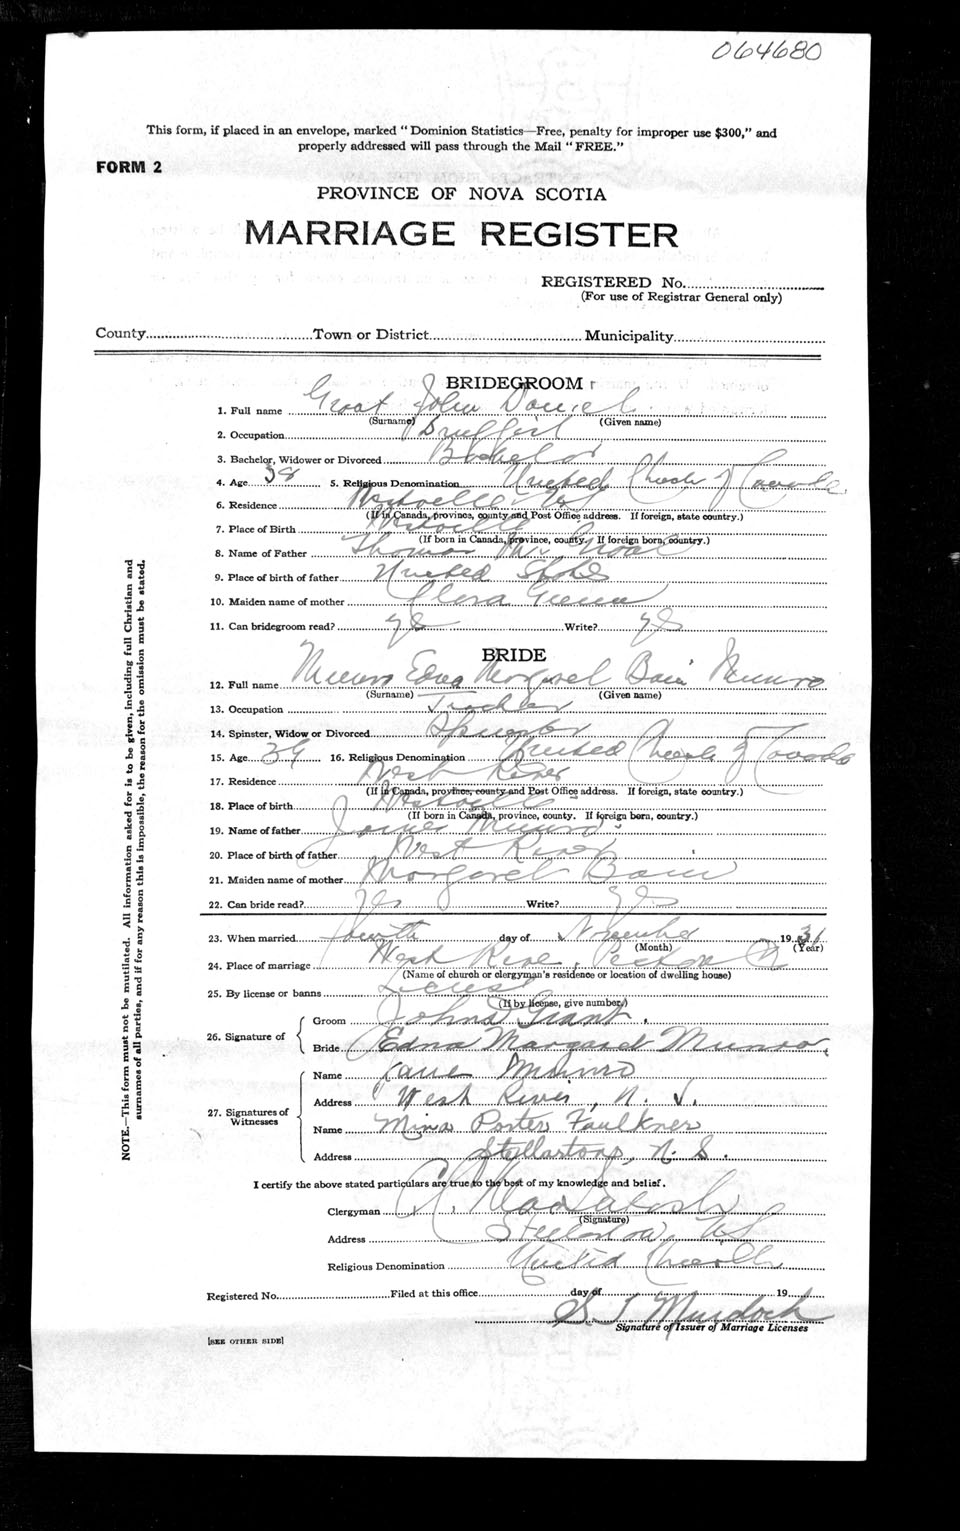 064680
This form, if placed in an envelope, marked "Dominion Statistics—Free, penalty for improper use $300," and
properly addressed will pass through the Mail "FREE."
FORM 2
PROVINCE OF NOVA SCOTIA
MARRIAGE REGISTER
REGISTERED No.
(For use of Registrar General only)
County Town or District Municipality
BRIDEGROOM
1. Full name Grant John Daniel
(Surname) (Given name)
2. Occupation Druggist
3. Bachelor, Widower or Divorced Bachelor
4. Age 38 5. Religious Denomination United Church of Canada
6. Residence Westville
(If in Canada, province, county and Post Office address. If foreign, state country.)
7. Place of Birth Westville
(If born in Canada, province, county. If foreign born, country.)
8. Name of Father Thomas Grant
9. Place of birth of father United States
10. Maiden name of mother Flora
11. Can bridegroom read? yes Write? yes
BRIDE
12. Full name Munro Edna Margaret Bain Munro
(Surname) (Given name)
13. Occupation Teacher
14. Spinster, Widow or Divorced Spinster
15. Age 39 16. Religious Denomination United Church of Canada
17. Residence West River
(If in Canada, province, county and Post Office address. If foreign, state country.)
18. Place of birth Westville
(If born in Canada, province, county. If foreign born, country.)
19. Name of father James Munro
20. Place of birth of father West River
21. Maiden name of mother Margaret Bain
22. Can bride read? yes Write? yes
23. When married fourth day of November 1931
(Month) (Year)
24. Place of marriage West River, Pictou
(Name of church or clergyman's residence or location of dwelling house)
25. By license or banns License
(If by license, give number)
26. Signature of
Groom John D Grant.
Bride Edna Margaret Munro
27. Signatures of Witnesses
Name Munro
Address West River, N. S.
Name Mina Porter Faulkner
Address Stellarton, N. S.
I certify the above stated particulars are true to the best of my knowledge and belief.
Clergyman C. C. MacIntosh
(Signature)
Address Stellarton, N S
Religious Denomination United Church
Registered No. Filed at this office day of 19
S T Murdoch
Signature of Issuer of Marriage Licenses
[SEE OTHER SIDE]
NOTE.—This form must not be mutilated. All information asked for is to be given, including full Christian and
surnames of all parties, and if for any reason this is impossible, the reason for the omission must be stated.